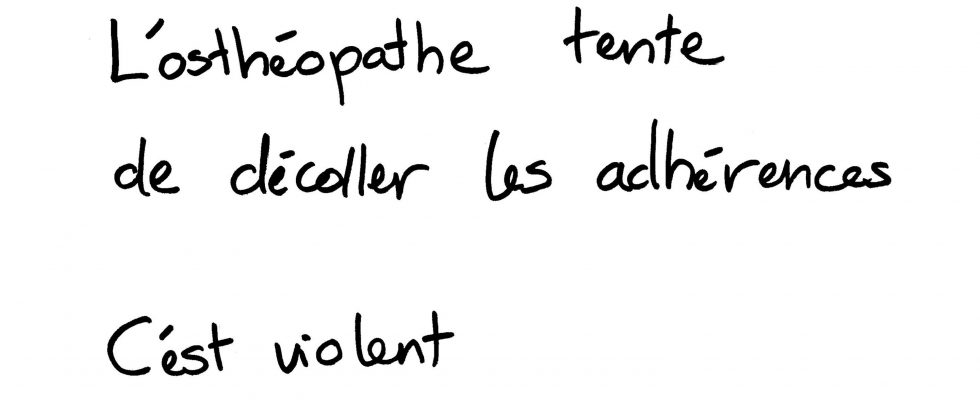 L'osthéopathe tente
de décoller les adhérences
C'est violent